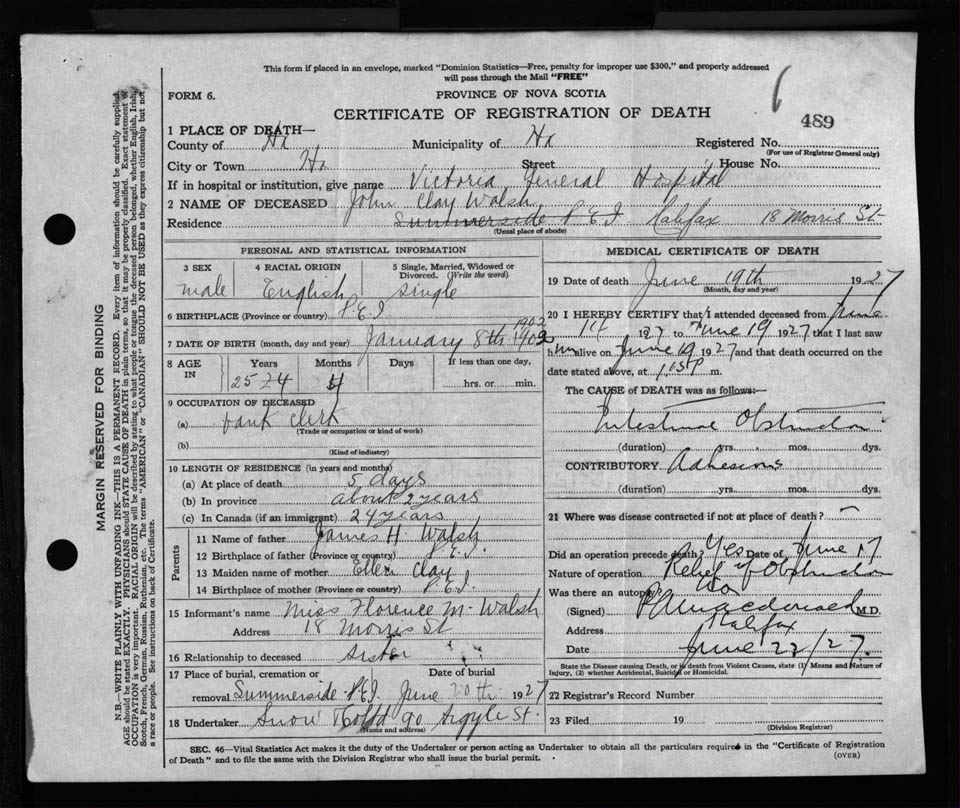 This form if placed in an envelope, marked "Dominion Statistics—Free, penalty for improper use $300," and properly addressed
will pass through the Mail "FREE"
FORM 6.
PROVINCE OF NOVA SCOTIA
CERTIFICATE OF REGISTRATION OF DEATH
489
1 PLACE OF DEATH—
County of Hx Municipality of Hx Registered No.
(For use of Registrar General only)
City or Town Hx Street House No.
If in hospital or institution, give name Victoria General Hospital
2 NAME OF DECEASED John Clay Walsh
Residence Summerside P.E.I. Halifax 18 Morris St
(Usual place of abode)
PERSONAL AND STATISTICAL INFORMATION
3 SEX 4 RACIAL ORIGIN 5 Single, Married, Widowed or Divorced. (Write the word)
male English single
6 BIRTHPLACE (Province or country) P.E.I
1902
7 DATE OF BIRTH (month, day and year) January 8th 1903
8 AGE IN Years Months Days If less than one day,
25 24 4 hrs. or min.
9 OCCUPATION OF DECEASED
(a) bank clerk
(Trade or occupation or kind of work)
(b)
(Kind of industry)
10 LENGTH OF RESIDENCE (in years and months)
(a) At place of death 5 days
(b) In province about 2 years
(c) In Canada (if an immigrant) 24 years
Parents
11 Name of father James H. Walsh
12 Birthplace of father (Province or country) P.E.I.
13 Maiden name of mother Ellen Clay
14 Birthplace of mother (Province or country) P.E.I.
15 Informant's name Miss Florence M. Walsh
Address 18 Morris St
16 Relationship to deceased Sister
17 Place of burial, cremation or removal Summerside P.E.I. Date of burial June 20th 1927
18 Undertaker Snow & Co Ltd 90 Argyle St.
(Name and address)
MEDICAL CERTIFICATE OF DEATH
19 Date of death June 19th 1927
(Month, day and year)
20 I HEREBY CERTIFY that I attended deceased from June
14 1927 to June 19 1927 that I last saw
him alive on June 19 1927 and that death occurred on the
date stated above, at 1.15 P m.
The CAUSE OF DEATH was as follows:—
Intestinal Obstruction
(duration) yrs. mos. dys.
CONTRIBUTORY Adhesions
(duration) yrs. mos. dys.
21 Where was disease contracted if not at place of death? —
Did an operation precede death? Yes Date of June 17
Nature of operation Relief of Obstruction
Was there an autopsy? No
(Signed) Macdonald M.D.
Address Halifax
Date June 22/27.
State the Disease causing Death, or in death from Violent Causes, state (1) Means and Nature of
Injury, (2) whether Accidental, Suicidal or Homicidal.
22 Registrar's Record Number
23 Filed 19
SEC. 46—Vital Statistics Act makes it the duty of the Undertaker or person acting as Undertaker to obtain all the particulars required in the "Certificate of Registration
of Death" and to file the same with the Division Registrar who shall issue the burial permit. (OVER)
MARGIN RESERVED FOR BINDING
N.B.—WRITE PLAINLY WITH UNFADING INK—THIS IS A PERMANENT RECORD. Every item of information should be carefully supplied.
AGE should be stated EXACTLY. PHYSICIANS should STATE CAUSE OF DEATH in plain terms, so that it may be properly classified. Exact statement of
OCCUPATION is very important. RACIAL ORIGIN will be described by stating to what people or tongue the deceased person belonged, whether English, Irish,
Scotch, French, German, Russian, Ruthenian, etc. The terms "AMERICAN" or "CANADIAN" SHOULD NOT BE USED as they express citizenship but not
a race or people. See instructions on back of Certificate.